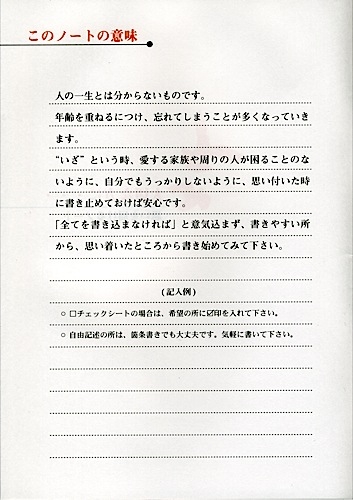 このノートの意味
人の一生とは分からないものです。
年齢を重ねるにつけ、忘れてしまうことが多くなっていき
ます。
“いざ”という時、愛する家族や周りの人が困ることのな
いように、自分でもうっかりしないように、思い付いた時
に書き止めておけば安心です。
「全てを書き込まなければ」と意気込まず、書きやすい所
から、思い着いたところから書き始めてみて下さい。
(記入例)
○ □チェックシートの場合は、希望の所に☑印を入れて下さい。
○ 自由記述の所は、箇条書きでも大丈夫です。気軽に書いて下さい。